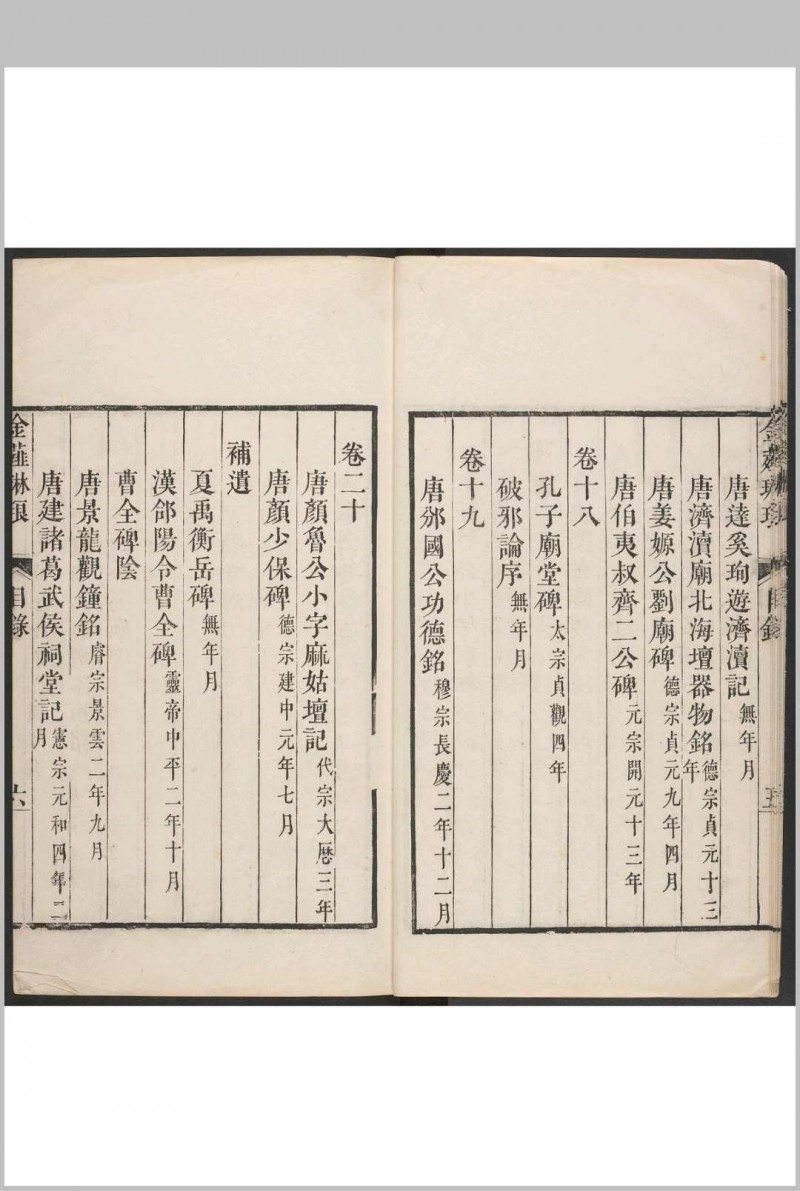 金薤琳琅 目錄 五
唐達奚珣遊濟瀆記 無年月
唐濟瀆廟北海壇器物銘 德宗貞元十三年
唐姜嫄公劉廟碑 德宗貞元九年四月
唐伯夷叔齊二公碑 元宗開元十三年
卷十八
孔子廟堂碑 太宗貞觀四年
破邪論序 無年月
卷十九
唐邠國公功德銘 穆宗長慶二年十二月
卷二十
唐顏魯公小字麻姑壇記 代宗大厯三年
唐顏少保碑 德宗建中元年七月
補遺
夏禹衡岳碑 無年月
漢郃陽令曹全碑 靈帝中平二年十月
曹全碑陰
唐景龍觀鐘銘 睿宗景雲二年九月
唐建諸葛武侯祠堂記 憲宗元和四年二月
金薤琳琅 目錄 六